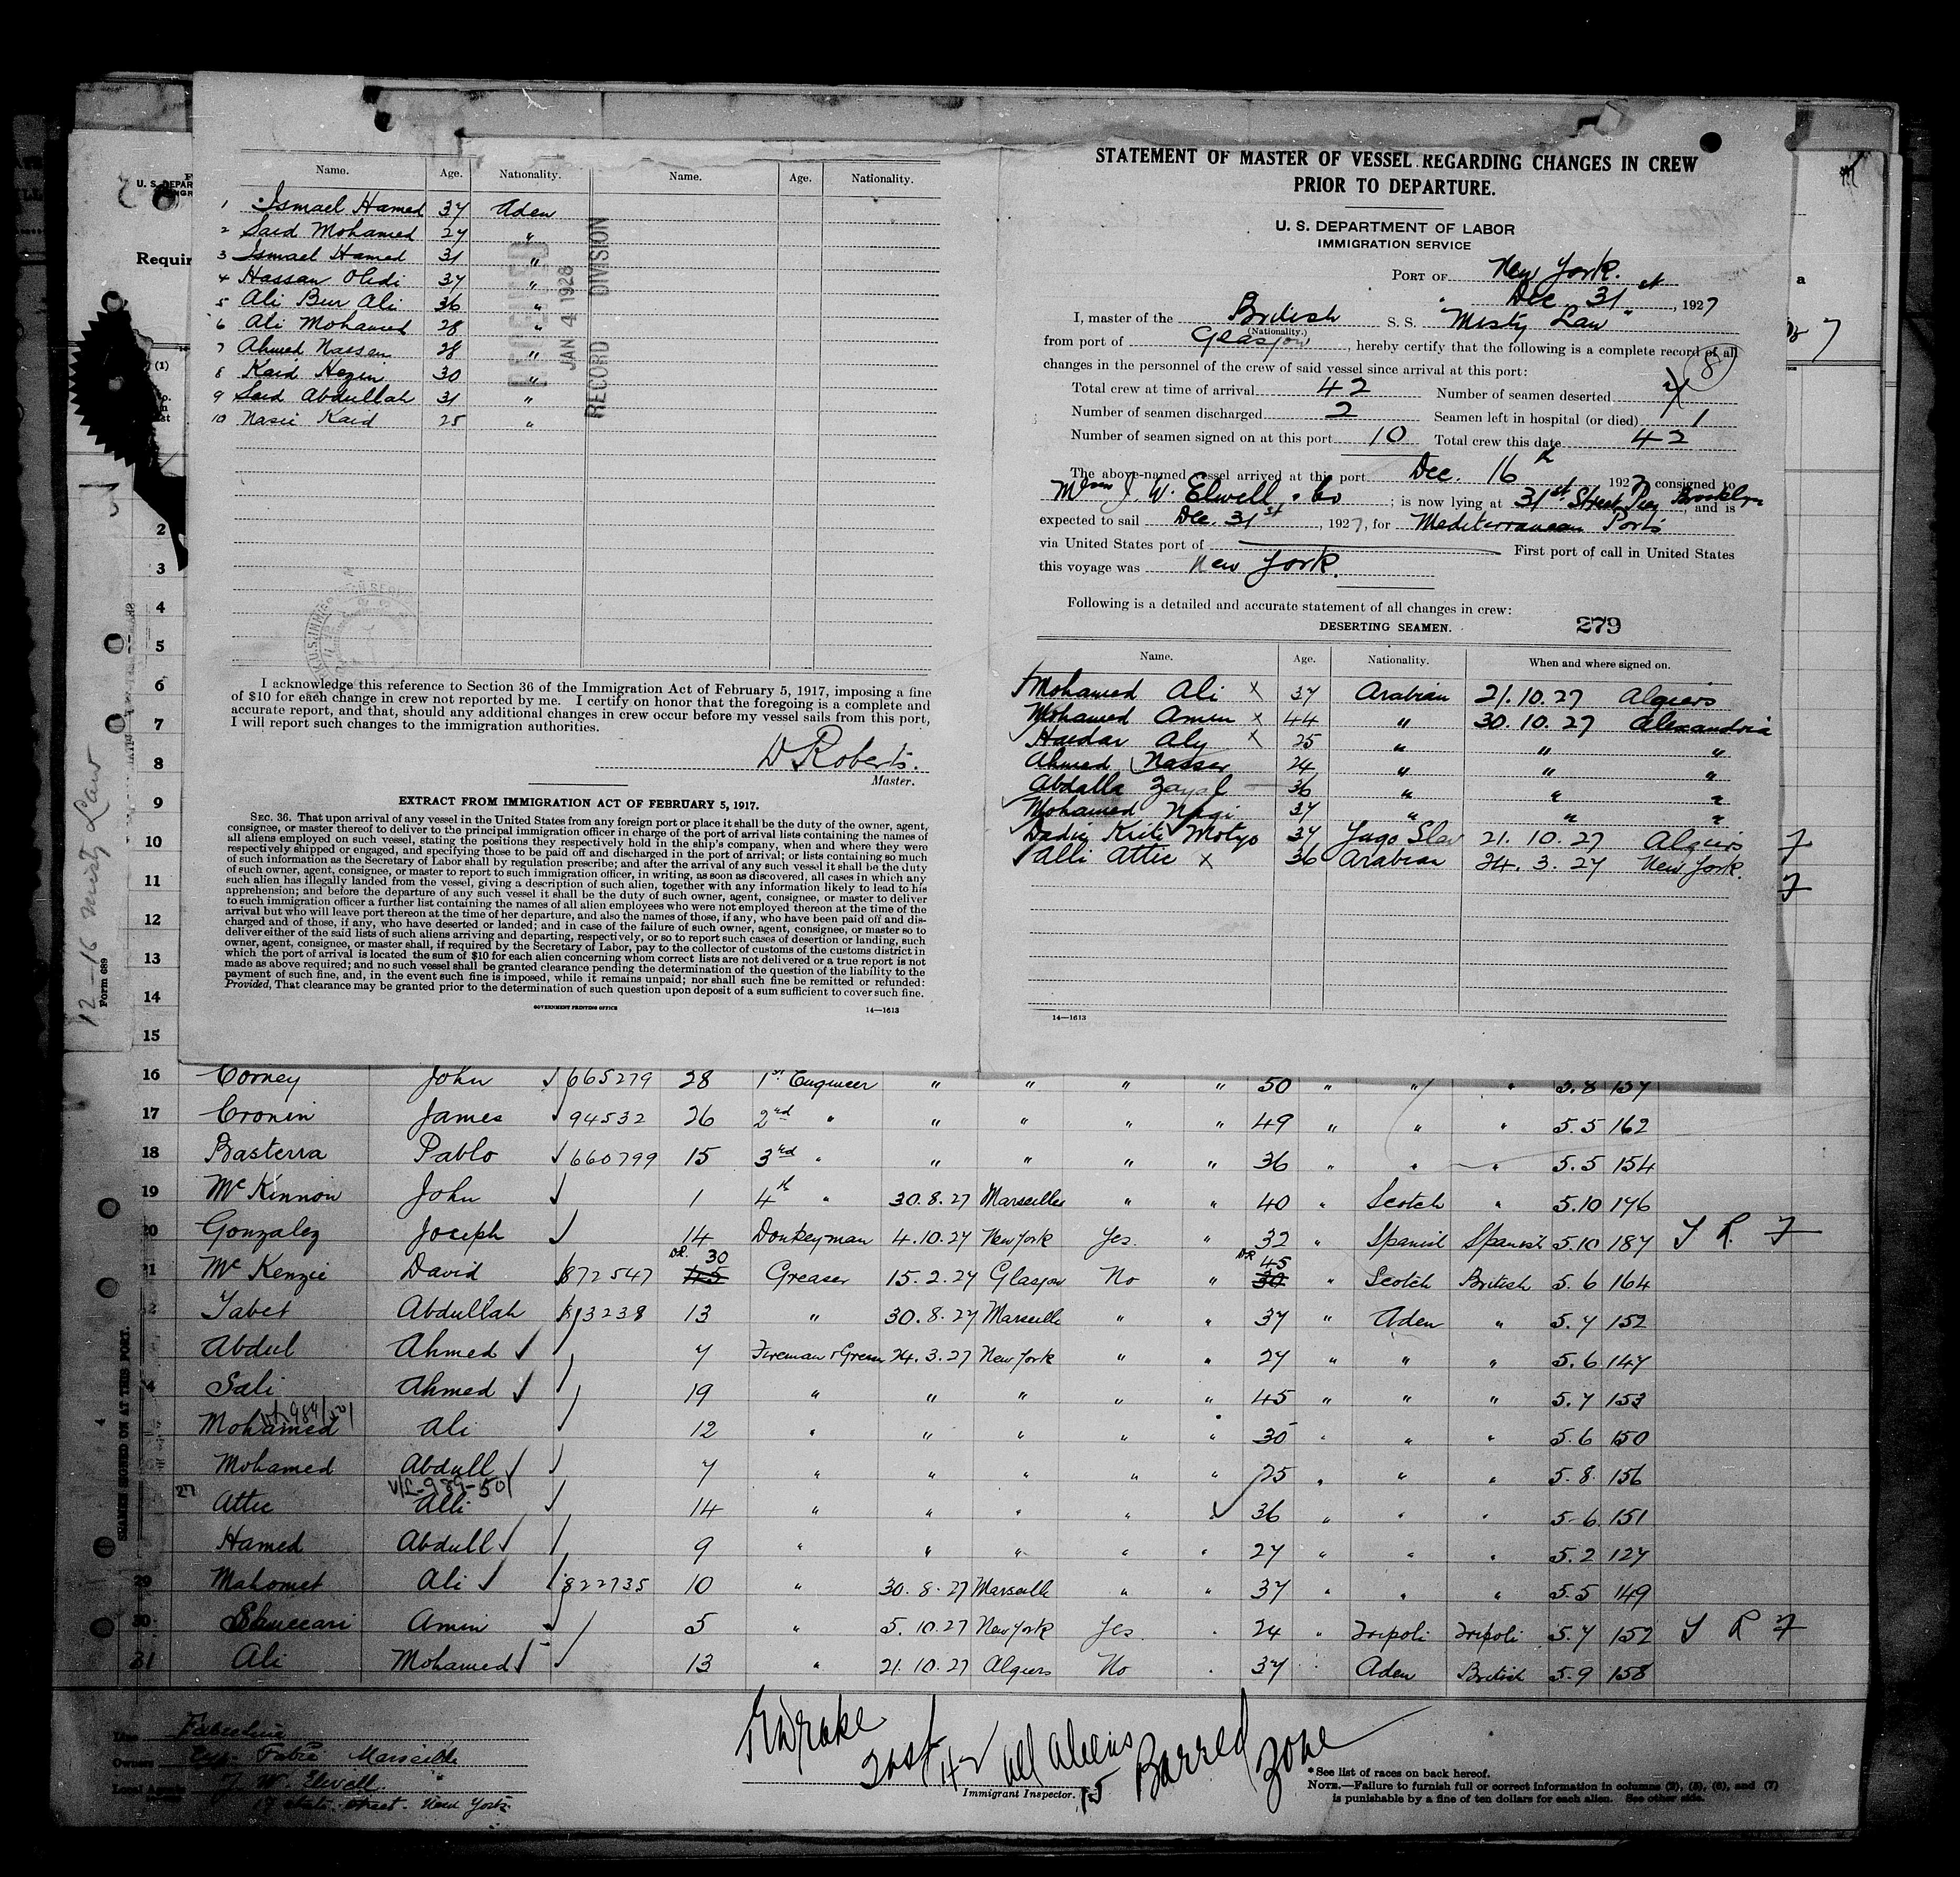 Name. Age. Nationality. Name. Age. Nationality.
1 Ismael Hamed 37 Aden
2 Said Mohamed 27 "
3 Ismael Hamed 31 "
4 Hassan Obdi 37 "
5 Ali Bur Ali 36 "
6 Ali Mohamed 28 "
7 Ahmed Nassen 28 "
8 Kaid Hazin 30 "
9 Said Abdullah 31 "
10 Nasii Kaid 25 "
RECEIVED
JAN 4 1928
RECORD DIVISION
I acknowledge this reference to Section 36 of the Immigration Act of February 5, 1917, imposing a fine
of $10 for each change in crew not reported by me. I certify on honor that the foregoing is a complete and
accurate report, and that, should any additional changes in crew occur before my vessel sails from this port,
I will report such changes to the immigration authorities.
D Roberts.
Master.
EXTRACT FROM IMMIGRATION ACT OF FEBRUARY 5, 1917.
SEC. 36. That upon arrival of any vessel in the United States from any foreign port or place it shall be the duty of the owner, agent,
consignee, or master thereof to deliver to the principal immigration officer in charge of the port of arrival lists containing the names of
all aliens employed on such vessel, stating the positions they respectively hold in the ship's company, when and where they were
respectively shipped or engaged, and specifying those to be paid off and discharged in the port of arrival; or lists containing so much
of such information as the Secretary of Labor shall by regulation prescribe; and after the arrival of any such vessel it shall be the duty
of such owner, agent, consignee, or master to report to such immigration officer, in writing, as soon as discovered, all cases in which any
such alien has illegally landed from the vessel, giving a description of such alien, together with any information likely to lead to his
apprehension; and before the departure of any such vessel it shall be the duty of such owner, agent, consignee, or master to deliver
to such immigration officer a further list containing the names of all alien employees who were not employed thereon at the time of the
arrival but who will leave port thereon at the time of her departure, and also the names of those, if any, who have been paid off and dis-
charged and of those, if any, who have deserted or landed; and in case of the failure of such owner, agent, consignee, or master so to
deliver either of the said lists of such aliens arriving and departing, respectively, or so to report such cases of desertion or landing, such
owner, agent, consignee, or master shall, if required by the Secretary of Labor, pay to the collector of customs of the customs district in
which the port of arrival is located the sum of $10 for each alien concerning whom correct lists are not delivered or a true report is not
made as above required; and no such vessel shall be granted clearance pending the determination of the question of the liability to the
payment of such fine, and, in the event such fine is imposed, while it remains unpaid; nor shall such fine be remitted or refunded:
Provided, That clearance may be granted prior to the determination of such question upon deposit of a sum sufficient to cover such fine.
GOVERNMENT PRINTING OFFICE 14—1613
STATEMENT OF MASTER OF VESSEL REGARDING CHANGES IN CREW
PRIOR TO DEPARTURE.
U. S. DEPARTMENT OF LABOR
IMMIGRATION SERVICE
PORT OF New York.
Dec. 31st, 1927
I, master of the British S. S. "Misty Law"
(Nationality.)
from port of Glasgow, hereby certify that the following is a complete record of all
changes in the personnel of the crew of said vessel since arrival at this port:
Total crew at time of arrival 42 Number of seamen deserted
Number of seamen discharged 2 Seamen left in hospital (or died) 1
Number of seamen signed on at this port 10 Total crew this date 42
The above-named vessel arrived at this port Dec. 16th 1927 consigned to
Messrs J. W. Elwell & Co; is now lying at 31st Street Pier Brooklyn, and is
expected to sail Dec. 31st, 1927, for Mediterranean Ports
via United States port of First port of call in United States
this voyage was New York.
Following is a detailed and accurate statement of all changes in crew:
DESERTING SEAMEN. 279
Name. Age. Nationality. When and where signed on.
Mohamed Ali x 37 Arabian 21.10.27 Algiers
Mohamed Amin x 44 " 30.10.27 Alexandria
Haidar Aly x 25 " " "
Ahmed Nasser 24 " " "
Abdalla Zayal 36 " " "
Mohamed Nagi 37 " " "
Dadic Krite Motyo 37 Jugo Slav 21.10.27 Algiers
Alli Attic x 36 Arabian 24.3.27 New York.
14—1613
12-16 Misty Law
Form 689
SEAMEN SIGNED ON AT THIS PORT.
16 Corney John 665279 28 1st Engineer " " " " 50 " " " 5.8 157
17 Cronin James 94532 26 2nd " " " " " 49 " " " 5.5 162
18 Basterra Pablo 660799 15 3rd " " " " " 36 " " " 5.5 154
19 McKinnon John 1 4th " 30.8.27 Marseilles " " 40 " Scotch " 5.10 176
20 Gonzalez Joseph 14 Donkeyman 4.10.27 New York Yes " 32 " Spanish Spanish 5.10 187
21 McKenzie David 872547 30 Greaser 15.2.27 Glasgow No " 45 " Scotch British 5.6 164
Tabet Abdullah 813238 13 " 30.8.27 Marseille " " 37 " Aden " 5.7 152
Abdul Ahmed 7 Fireman & Greaser 24.3.27 New York " " 27 " " " 5.6 147
Sali Ahmed 19 " " " " " 45 " " " 5.7 153
Mohamed Ali 12 " " " " " 35 " " " 5.6 150
Mohamed Abdull 7 " " " " " 25 " " " 5.8 156
27 Attic Alli 14 " " " " 36 " " " 5.6 151
Hamed Abdull 9 " " " " " 27 " " " 5.2 127
29 Mahomet Ali 822735 10 " 30.8.27 Marseille " " 37 " " " 5.5 149
30 Amin 5 " 5.10.27 New York Yes " 24 " Tripoli Tripoli 5.7 152
31 Ali Mohamed 13 " 21.10.27 Algiers No " 37 Aden British 5.9 158
Line Fabre Line
Owners Cyp. Fabre Marseille
Local Agents J. W. Elwell
17 State Street. New York
all aliens
15 Barred Zone
Immigrant Inspector.
*See list of races on back hereof.
NOTE.—Failure to furnish full or correct information in columns (2), (5), (6), and (7)
is punishable by a fine of ten dollars for each alien. See other side.